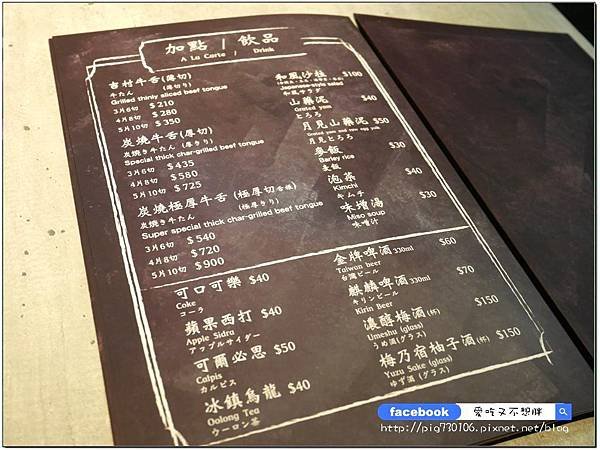 加點 / 飲品
A La Carte / Drink
吉村牛舌(薄切)
牛たん (薄切り)
Grilled thinly sliced beef tongue
3片6切 $210
4片8切 $280
5片10切 $350
炭燒牛舌(厚切)
炭焼き牛たん (厚きり)
Special thick char-grilled beef tongue
3片6切 $435
4片8切 $580
5片10切 $725
炭燒極厚牛舌(極厚切舌根)
炭焼き牛たん (極厚きり)
Super special thick char-grilled beef tongue
3片6切 $540
4片8切 $720
5片10切 $900
和風沙拉 $100
Japanese-style salad
和風サラダ
山藥泥 $40
Grated yam
とろろ
月見山藥泥 $50
Grated yam and raw egg yolk
月見とろろ
麥飯 $30
Barley rice
麦飯
泡菜 $40
Kimchi
キムチ
味增湯 $30
Miso soup
味噌汁
可口可樂 $40
Coke
コーラ
蘋果西打 $40
Apple Sidra
アップルサイダー
可爾必思 $50
Calpis
カルピス
冰鎮烏龍 $40
Oolong Tea
ウーロン茶
金牌啤酒330ml $60
Taiwan beer
台湾ビール
麒麟啤酒330ml $70
Kirin Beer
キリンビール
濃醇梅酒(杯) $150
Umeshu (glass)
うめ酒(グラス)
梅乃宿柚子酒(杯) $150
Yuzu Sake (glass)
ゆず酒(グラス)
facebook 愛吃又不想胖
http://pig730106.pixnet.net/blog